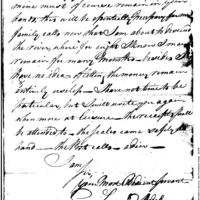 more must of course remain in your
hands, this will be
family calls now that I am about to descend
the river, where for aught I know I may
remain for many months — besides I
have no idea of the money remain
entirely useless — I have not time to be
particular but I will write you again
when more at leisure — the receipts shall
be attended to — the scales came safely to
hand — the Post calls — adieu —
I am
Sir,
Your Most Obedient Servant